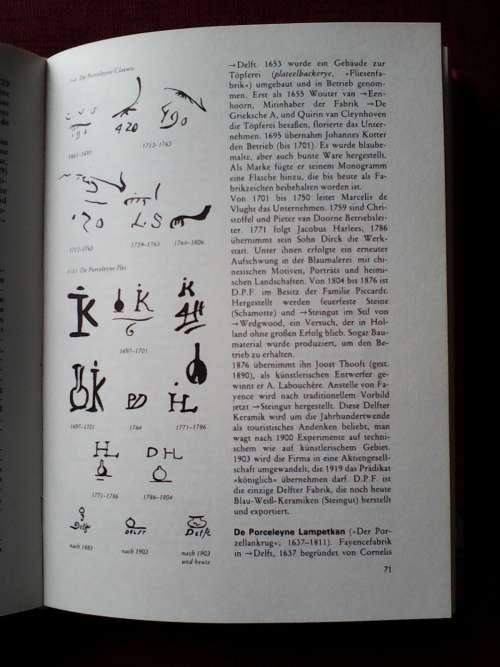 De Porceleyne Claeuw
1661–
420
1713–1763
1759–1763
1764–1806
De Porceleyne Fles
K
6
K
1697–1701
1697–1701
1764
1771–1786
HL
DH
L
1771–1786
1786–1804
Delft
DELFT
Delft
nach 1903
nach 1903
und heute
→Delft. 1653 wurde ein Gebäude zur
Töpferei (plateelbackerye, »Fliesenfa-
brik«) umgebaut und in Betrieb genom-
men. Erst als 1655 Wouter van →Een-
hoorn, Mitinhaber der Fabrik →De
Grieksche A, und Quirin van Cleynhoven
die Töpferei besaßen, florierte das Unter-
nehmen. 1695 übernahm Johannes Kotter
den Betrieb (bis 1701). Es wurde blaube-
malte, aber auch bunte Ware hergestellt.
Als Marke fügte er seinem Monogramm
eine Flasche hinzu, die bis heute als Fa-
brikzeichen beibehalten worden ist.
Von 1701 bis 1750 leitet Marcelis de
Vlught das Unternehmen. 1759 sind Chri-
stoffel und Pieter van Doorne Betriebslei-
ter. 1771 folgt Jacobus Harlees, 1786
übernimmt sein Sohn Dirck die Werk-
statt. Unter ihnen erfolgte ein erneuter
Aufschwung in der Blaumalerei mit chi-
nesischen Motiven, Porträts und heimi-
schen Landschaften. Von 1804 bis 1876 ist
D.P.F. im Besitz der Familie Piccardt.
Hergestellt werden feuerfeste Steine
(Schamotte) und →Steingut im Stil von
→Wedgwood, ein Versuch, der in Hol-
land ohne großen Erfolg blieb. Sogar Bau-
material wurde produziert, um den Be-
trieb zu erhalten.
1876 übernimmt ihn Joost Thooft (gest.
1890), als künstlerischen Entwerfer ge-
winnt er A. Labouchère. Anstelle von Fa-
yence wird nach traditionellem Vorbild
jetzt →Steingut hergestellt. Diese Delfter
Keramik wird um die Jahrhundertwende
als touristisches Andenken beliebt, man
wagt nach 1900 Experimente auf techni-
schem wie auf künstlerischem Gebiet.
1903 wird die Firma in eine Aktiengesell-
schaft umgewandelt, die 1919 das Prädikat
»königlich« übernehmen darf. D.P.F. ist
die einzige Delfter Fabrik, die noch heute
Blau-Weiß-Keramiken (Steingut) herstellt
und exportiert.
De Porceleyne Lampetkan (»Der Por-
zellankrug«; 1637–1811). Fayencefabrik
in →Delft, 1637 begründet von Cornelis
71